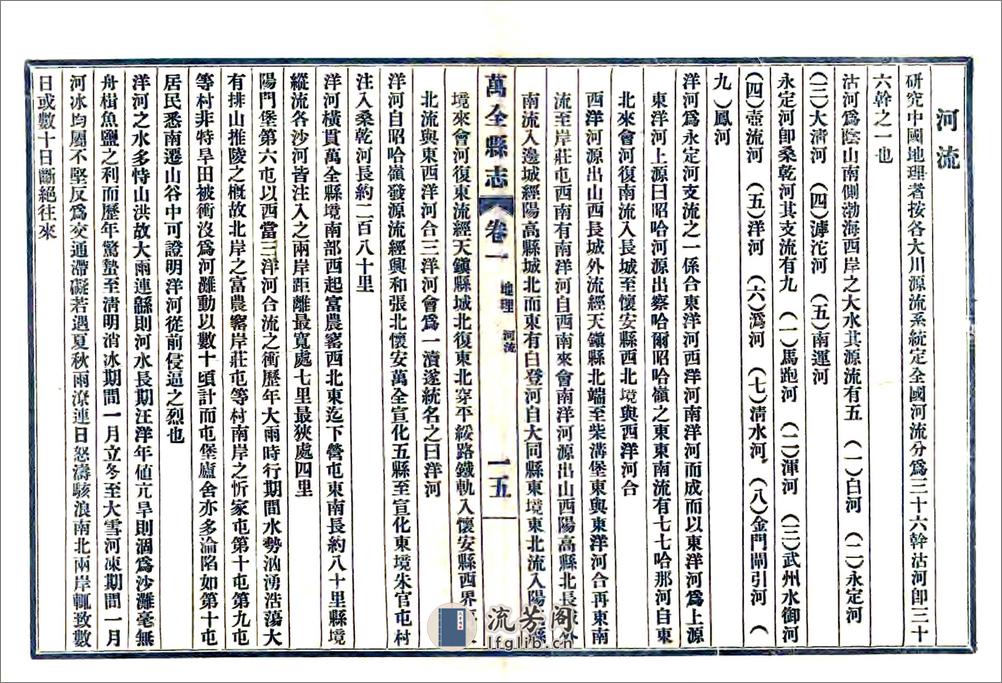 河流
研究中國地理者按各大川源流系統定全國河流分爲三十六幹沽河卽三十
六幹之一也
沽河爲陰山南側渤海西岸之大水其源流有五 (一)白河 (二)永定河
(三)大淸河 (四)滹沱河 (五)南運河
永定河卽桑乾河其支流有九 (一)馬跑河 (二)渾河 (三)武州水御河
(四)壺流河 (五)洋河 (六)潙河 (七)清水河 (八)金門閘引河 (
九)鳳河
洋河爲永定河支流之一係合東洋河西洋河南洋河而成而以東洋河爲上源
東洋河上源曰昭哈河源出察哈爾昭哈嶺之東東南流有七七哈那河自東
北來會河復南流入長城至懷安縣西北境與西洋河合
西洋河源出山西長城外流經天鎮縣北端至柴溝堡東與東洋河合再東南
流至岸莊屯西南有南洋河自西南來會南洋河源出山西陽高縣北長城外
南流入邊城經陽高縣城北而東有白登河自大同縣東境東北流入陽高縣
境來會河復東流經天鎮縣城北復東北穿平綏路鐵軌入懷安縣西界
北流與東西洋河合三洋河會爲一瀆遂統名之曰洋河
洋河自昭哈嶺發源流經興和張北懷安萬全宣化五縣至宣化東境朱官屯村
注入桑乾河長約二百八十里
洋河橫貫萬全縣境南部西起富農窰西北東迄下營屯東南長約八十里縣境
縱流各沙河皆注入之兩岸距離最寬處七里最狹處四里
陽門堡第六屯以西當三洋河合流之衝歷年大雨時行期間水勢汹湧浩蕩大
有排山推陵之槪故北岸之富農窰岸莊屯等村南岸之忻家屯第十屯第九屯
等村非特旱田被衝沒爲河灘動以數十頃計而屯堡廬舍亦多淪陷如第十屯
居民悉南遷山谷中可證明洋河從前侵逼之烈也
洋河之水多恃山洪故大雨連緜則河水長期汪洋年値亢旱則涸爲沙灘毫無
舟楫魚鹽之利而歷年驚蟄至清明消冰期間一月立冬至大雪河凍期間一月
河冰均屬不堅反爲交通滯礙若遇夏秋雨潦連日怒濤駭浪南北兩岸輒致數
日或數十日斷絕往來
萬全縣志 卷一 地理 河流 一五
流芳阁
lfglib.cn